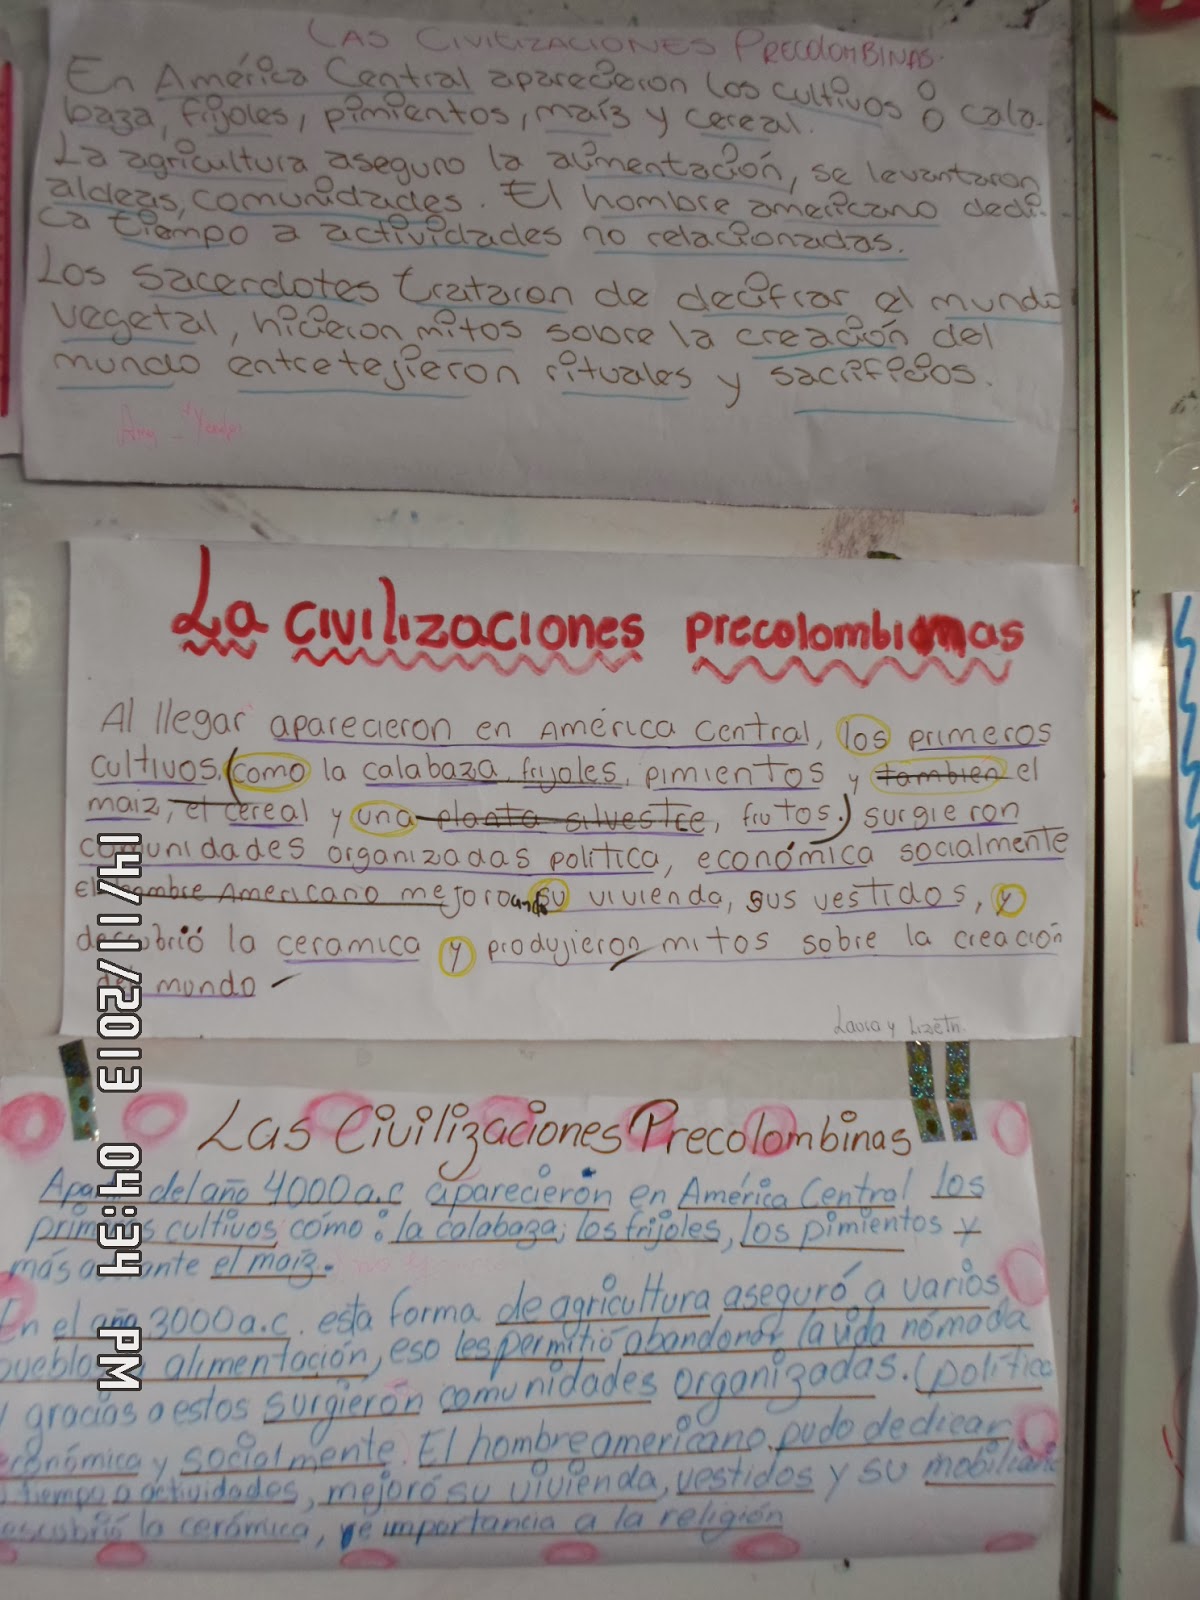 LAS CIVILIZACIONES PRECOLOMBINAS.
En América Central aparecieron los cultivos : cala-
baza, frijoles, pimientos, maíz y cereal.
La agricultura aseguro la alimentación, se levantaron
aldeas, comunidades. El hombre americano dedi-
ca tiempo a actividades no relacionadas.
Los sacerdotes trataron de decifrar el mundo
vegetal, hicieron mitos sobre la creación del
mundo entretejieron rituales y sacrificios.
La civilizaciones precolombinas
Al llegar aparecieron en América Central, los primeros
cultivos, (como la calabaza, frijoles, pimientos y también el
maiz, el cereal y una planta silvestre, frutos.) surgieron
comunidades organizadas política, económica socialmente
El hombre Americano mejoro su vivienda, sus vestidos, y
descubrió la ceramica y produjieron mitos sobre la creación
del mundo
Laura y Lizeth.
Las Civilizaciones Precolombinas
del año 4000 a.c aparecierón en América Central los
primeros cultivos como : la calabaza; los frijoles, los pimientos y
más adelante el maiz.
En el año 3000 a.c. esta forma de agricultura aseguró a varios
alimentación, eso les permitió abandonar la vida nómada
y gracias a estos surgierón comunidades organizadas. (política
económica y socialmente. El hombre americano pudo dedicar
tiempo a actividades, mejoró su vivienda, vestidos y su mobiliario
descubrió la cerámica, importancia a la religión
14/11/2013 04:34 PM